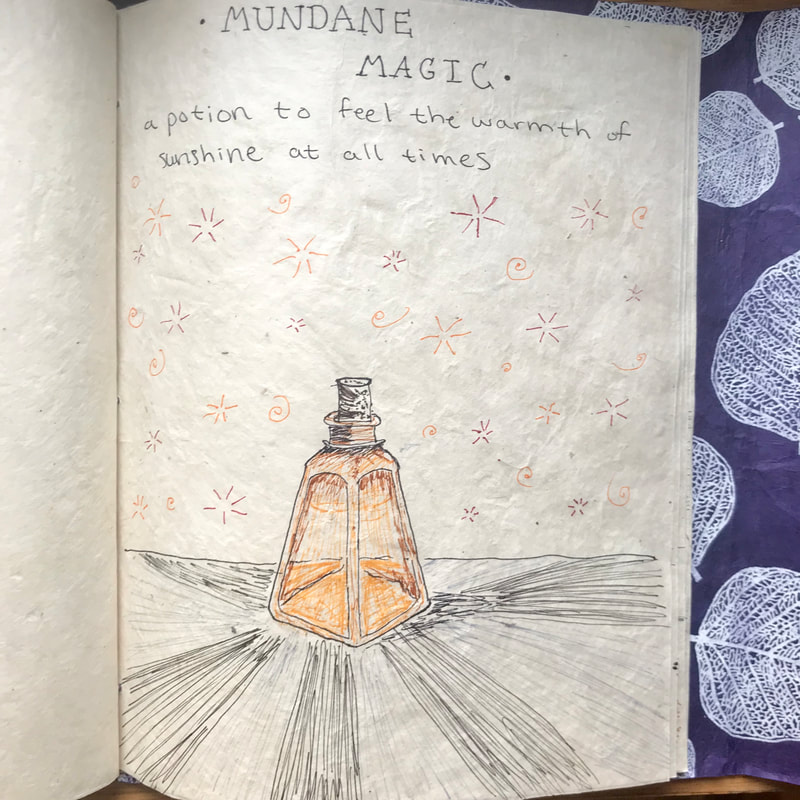 · MUNDANE
MAGIC ·
a potion to feel the warmth of
sunshine at all times